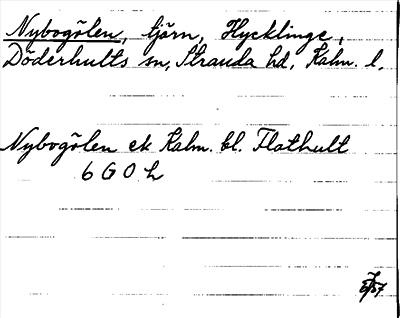 Nybogölen, tjärn, Hycklinge,
Döderhults sn, Stranda hd, Kalm. l.
Nybogölen ek Kalm. bl. Flathult
6 G 0 h